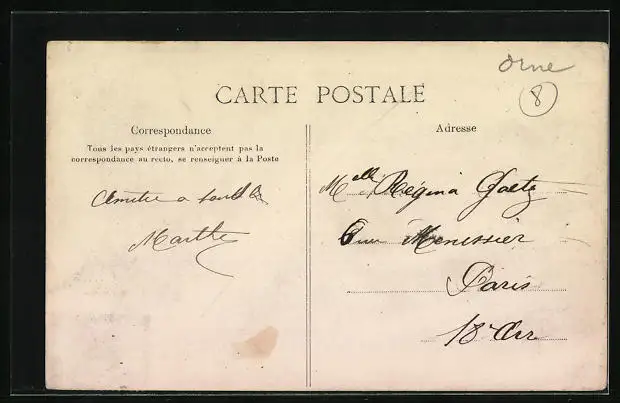 Orne
8
CARTE POSTALE
Correspondance
Tous les pays étrangers n'acceptent pas la
correspondance au recto, se renseigner à la Poste
Amitié a
Marthe
Adresse
Melle Régina Goetz
6 rue Menessier
Paris
18e Arr